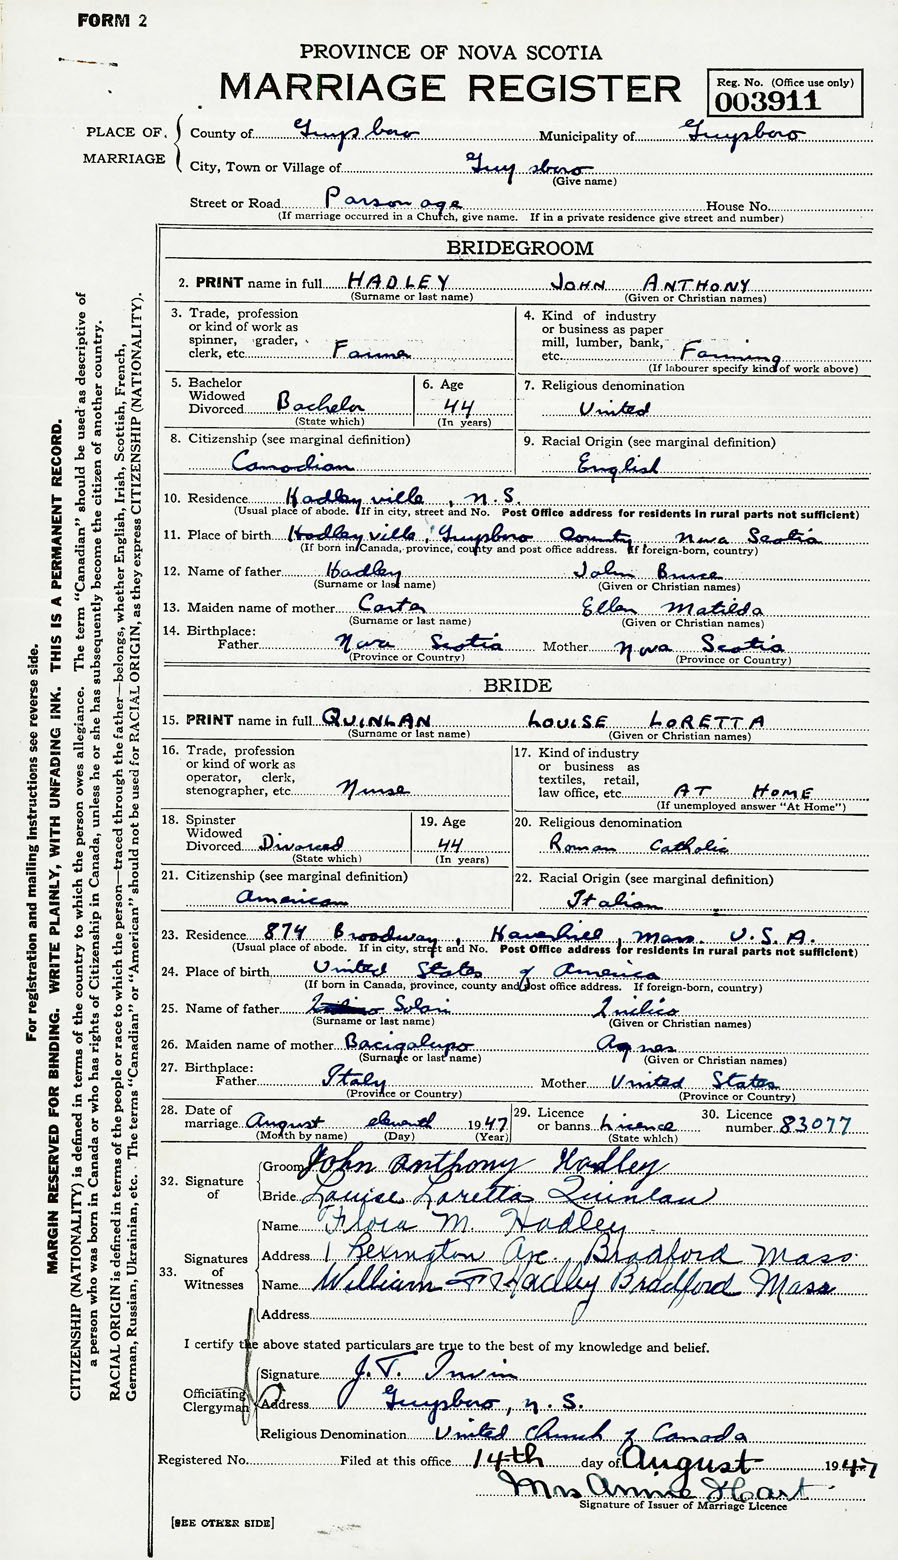 FORM 2
PROVINCE OF NOVA SCOTIA
MARRIAGE REGISTER
Reg. No. (Office use only)
003911
PLACE OF MARRIAGE
County of Guysboro Municipality of Guysboro
City, Town or Village of Guysboro
(Give name)
Street or Road Parsonage House No.
(If marriage occurred in a Church, give name. If in a private residence give street and number)
BRIDEGROOM
2. PRINT name in full HADLEY JOHN ANTHONY
(Surname or last name) (Given or Christian names)
3. Trade, profession or kind of work as spinner, grader, clerk, etc. Farmer
4. Kind of industry or business as paper mill, lumber, bank, etc. Farming
(If labourer specify kind of work above)
5. Bachelor Widowed Divorced Bachelor
(State which)
6. Age 44
(In years)
7. Religious denomination
United
8. Citizenship (see marginal definition)
Canadian
9. Racial Origin (see marginal definition)
English
10. Residence Hadleyville, N.S.
(Usual place of abode. If in city, street and No. Post Office address for residents in rural parts not sufficient)
11. Place of birth Hadleyville, Guysboro County Nova Scotia
(If born in Canada, province, county and post office address. If foreign-born, country)
12. Name of father Hadley John Bruce
(Surname or last name) (Given or Christian names)
13. Maiden name of mother Carter Ellen Matilda
(Surname or last name) (Given or Christian names)
14. Birthplace:
Father Nova Scotia Mother Nova Scotia
(Province or Country) (Province or Country)
BRIDE
15. PRINT name in full QUINLAN LOUISE LORETTA
(Surname or last name) (Given or Christian names)
16. Trade, profession or kind of work as operator, clerk, stenographer, etc. Nurse
17. Kind of industry or business as textiles, retail, law office, etc. AT HOME
(If unemployed answer "At Home")
18. Spinster Widowed Divorced Divorced
(State which)
19. Age 44
(In years)
20. Religious denomination
Roman Catholic
21. Citizenship (see marginal definition)
American
22. Racial Origin (see marginal definition)
Italian
23. Residence 874 Broadway, Haverhill, Mass. U.S.A.
(Usual place of abode. If in city, street and No. Post Office address for residents in rural parts not sufficient)
24. Place of birth United States of America
(If born in Canada, province, county and post office address. If foreign-born, country)
25. Name of father Solari
(Surname or last name) (Given or Christian names)
26. Maiden name of mother Bacigalupo Agnes
(Surname or last name) (Given or Christian names)
27. Birthplace:
Father Italy Mother United States
(Province or Country) (Province or Country)
28. Date of marriage August eleventh 1947
(Month by name) (Day) (Year)
29. Licence or banns Licence
(State which)
30. Licence number 83077
32. Signature of
Groom John Anthony Hadley
Bride Louise Loretta Quinlan
33. Signatures of Witnesses
Name Flora M. Hadley
Address 1 Lexington Ave. Bradford Mass.
Name William F Hadley Bradford Mass
Address
I certify the above stated particulars are true to the best of my knowledge and belief.
Officiating Clergyman
Signature J. T. Irwin
Address Guysboro, N.S.
Religious Denomination United Church of Canada
Registered No. Filed at this office 14th day of August 1947
Mrs Annie Hart
Signature of Issuer of Marriage Licence
[SEE OTHER SIDE]
For registration and mailing instructions see reverse side.
MARGIN RESERVED FOR BINDING. WRITE PLAINLY, WITH UNFADING INK. THIS IS A PERMANENT RECORD.
CITIZENSHIP (NATIONALITY) is defined in terms of the country to which the person owes allegiance. The term "Canadian" should be used as descriptive of
a person who was born in Canada or who has rights of Citizenship in Canada, unless he or she has subsequently become the citizen of another country.
RACIAL ORIGIN is defined in terms of the people or race to which the person—traced through the father—belongs, whether English, Irish, Scottish, French,
German, Russian, Ukrainian, etc. The terms "Canadian" or "American" should not be used for RACIAL ORIGIN, as they express CITIZENSHIP (NATIONALITY).